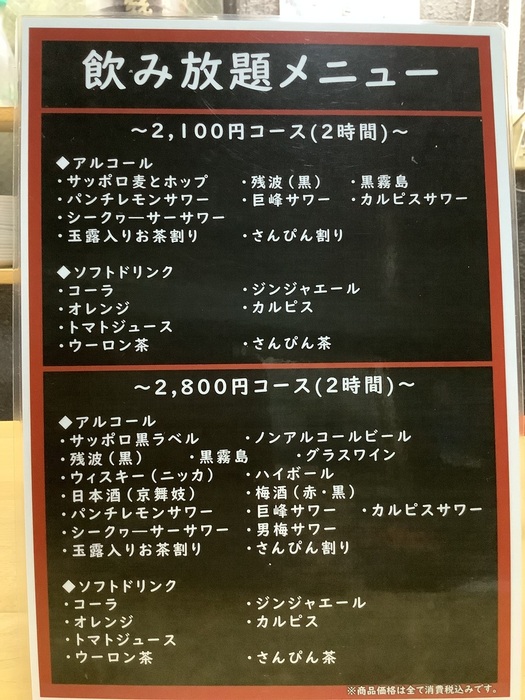 飲み放題メニュー
～2,100円コース(2時間)～
◆アルコール
・サッポロ麦とホップ ・残波(黒) ・黒霧島
・パンチレモンサワー ・巨峰サワー ・カルピスサワー
・シークヮーサーサワー
・玉露入りお茶割り ・さんぴん割り
◆ソフトドリンク
・コーラ ・ジンジャエール
・オレンジ ・カルピス
・トマトジュース
・ウーロン茶 ・さんぴん茶
～2,800円コース(2時間)～
◆アルコール
・サッポロ黒ラベル ・ノンアルコールビール
・残波(黒) ・黒霧島 ・グラスワイン
・ウィスキー(ニッカ) ・ハイボール
・日本酒(京舞妓) ・梅酒(赤・黒)
・パンチレモンサワー ・巨峰サワー ・カルピスサワー
・シークヮーサーサワー ・男梅サワー
・玉露入りお茶割り ・さんぴん割り
◆ソフトドリンク
・コーラ ・ジンジャエール
・オレンジ ・カルピス
・トマトジュース
・ウーロン茶 ・さんぴん茶
※商品価格は全て消費税込みです。